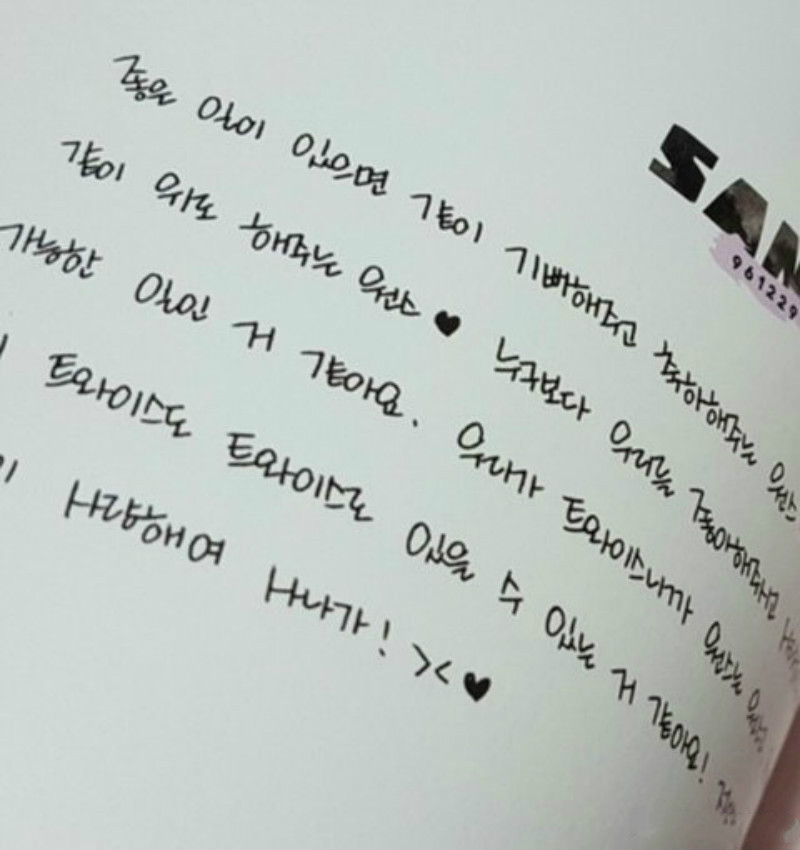 SAN
961229
좋은 일이 있으면 같이 기뻐해주고 축하해주는 원스
같이 위로 해주는 원스♥ 누구보다 우리를 좋아해주시고
가능한 일인 거 같아요. 우리가 트와이스니까 원스는
트와이스도 트와이스로 있을 수 있는 거 같아요!
사랑해여 사나가! ><♥